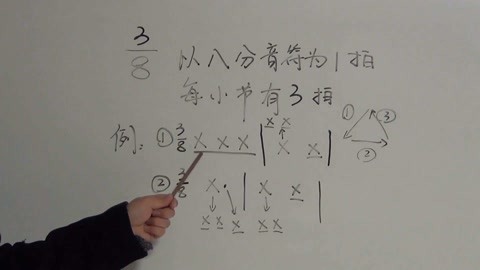 3/8 以八分音符为1拍
每小节有3拍
例: ① 3/8 X X X | X X X X | ① ② ③
② 3/8 X· | X X |
X X X X X